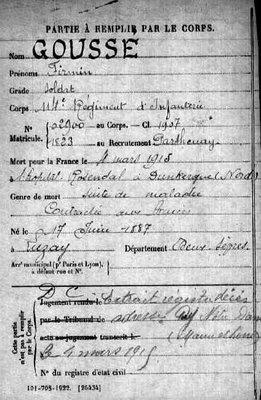 PARTIE À REMPLIR PAR LE CORPS.
Nom GOUSSÉ
Prénoms Firmin
Grade Soldat
Corps 114e Régiment d'Infanterie
N° 02900 au Corps. — Cl. 1907
Matricule. 1823 au Recrutement Parthenay
Mort pour la France le 4 mars 1915
à Hôpital Rosendal à Dunkerque (Nord)
Genre de mort suite de maladie
Contractée aux Armées
Né le 17 Juin 1887
à Luzay Département Deux-Sèvres
Arr' municipal (p' Paris et Lyon),
à défaut rue et N°.
Cette partie n'est pas à remplir par le Corps.
Jugement rendu le Extrait registre décès
par le Tribunal de adressé
acte ou jugement transcrit le
le 4 mars 1915
N° du registre d'état civil
101-708-1922. [26434]